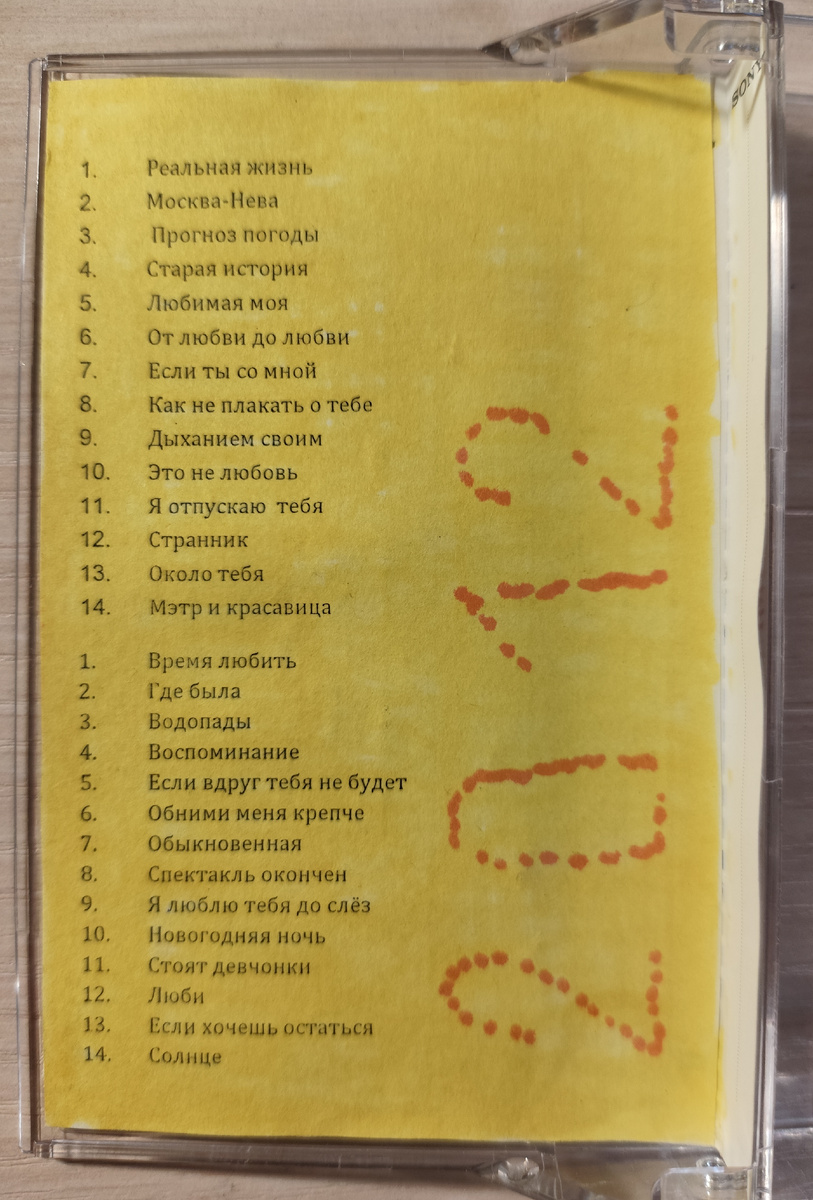 1. Реальная жизнь
2. Москва-Нева
3. Прогноз погоды
4. Старая история
5. Любимая моя
6. От любви до любви
7. Если ты со мной
8. Как не плакать о тебе
9. Дыханием своим
10. Это не любовь
11. Я отпускаю тебя
12. Странник
13. Около тебя
14. Мэтр и красавица
1. Время любить
2. Где была
3. Водопады
4. Воспоминание
5. Если вдруг тебя не будет
6. Обними меня крепче
7. Обыкновенная
8. Спектакль окончен
9. Я люблю тебя до слёз
10. Новогодняя ночь
11. Стоят девчонки
12. Люби
13. Если хочешь остаться
14. Солнце
2012
SONY